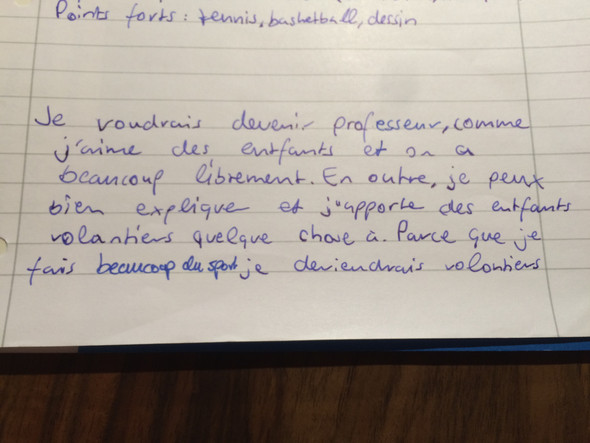 Points forts: tennis, basketball, dessin
Je voudrais devenir professeur, comme
j'aime des entfants et on a
beaucoup librement. En outre, je peux
bien explique et j'apporte des entfants
volantiers quelque chose à. Parce que je
fais beaucoup du sport je deviendrais volontiers